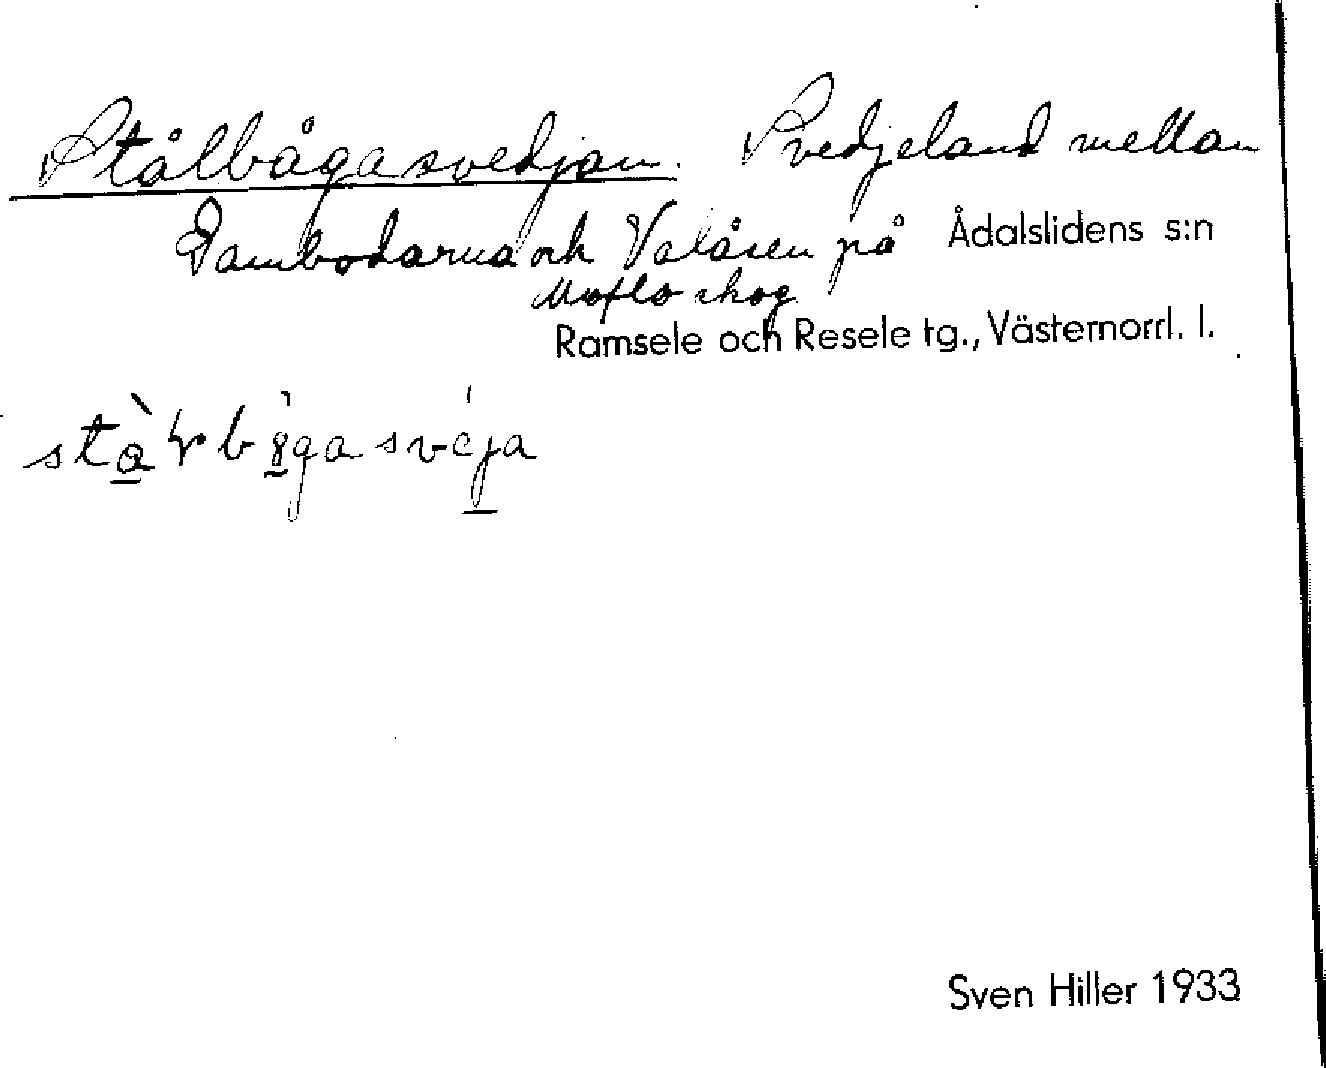 Stålbågasvedjan. Svedjeland mellan
Dambodarna och Valåsen på Ådalslidens s:n
Moflo skog
Ramsele och Resele tg., Västernorrl. l.
Sven Hiller 1933